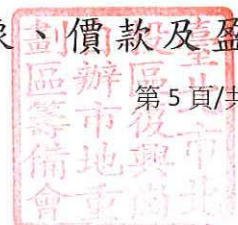 象、價款及盈
第 5 頁/共
臺北市北
投區復興崗
自辦市地重
劃區籌備會